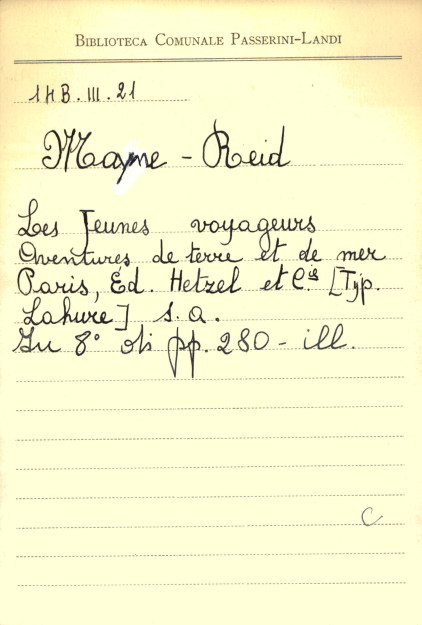 BIBLIOTECA COMUNALE PASSERINI-LANDI
1HB.III.21
Mayne - Reid
Les Jeunes voyageurs
Aventures de terre et de mer
Paris, Éd. Hetzel et C.ie [Typ.
Lahure] s.a.
In 8° di pp. 280 - ill.
C